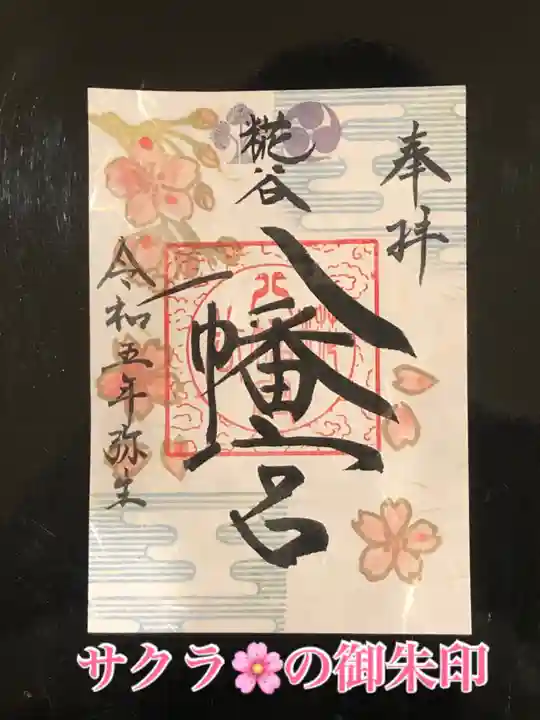 奉拝
糀谷
八幡宮
令和五年弥生
サクラ🌸の御朱印